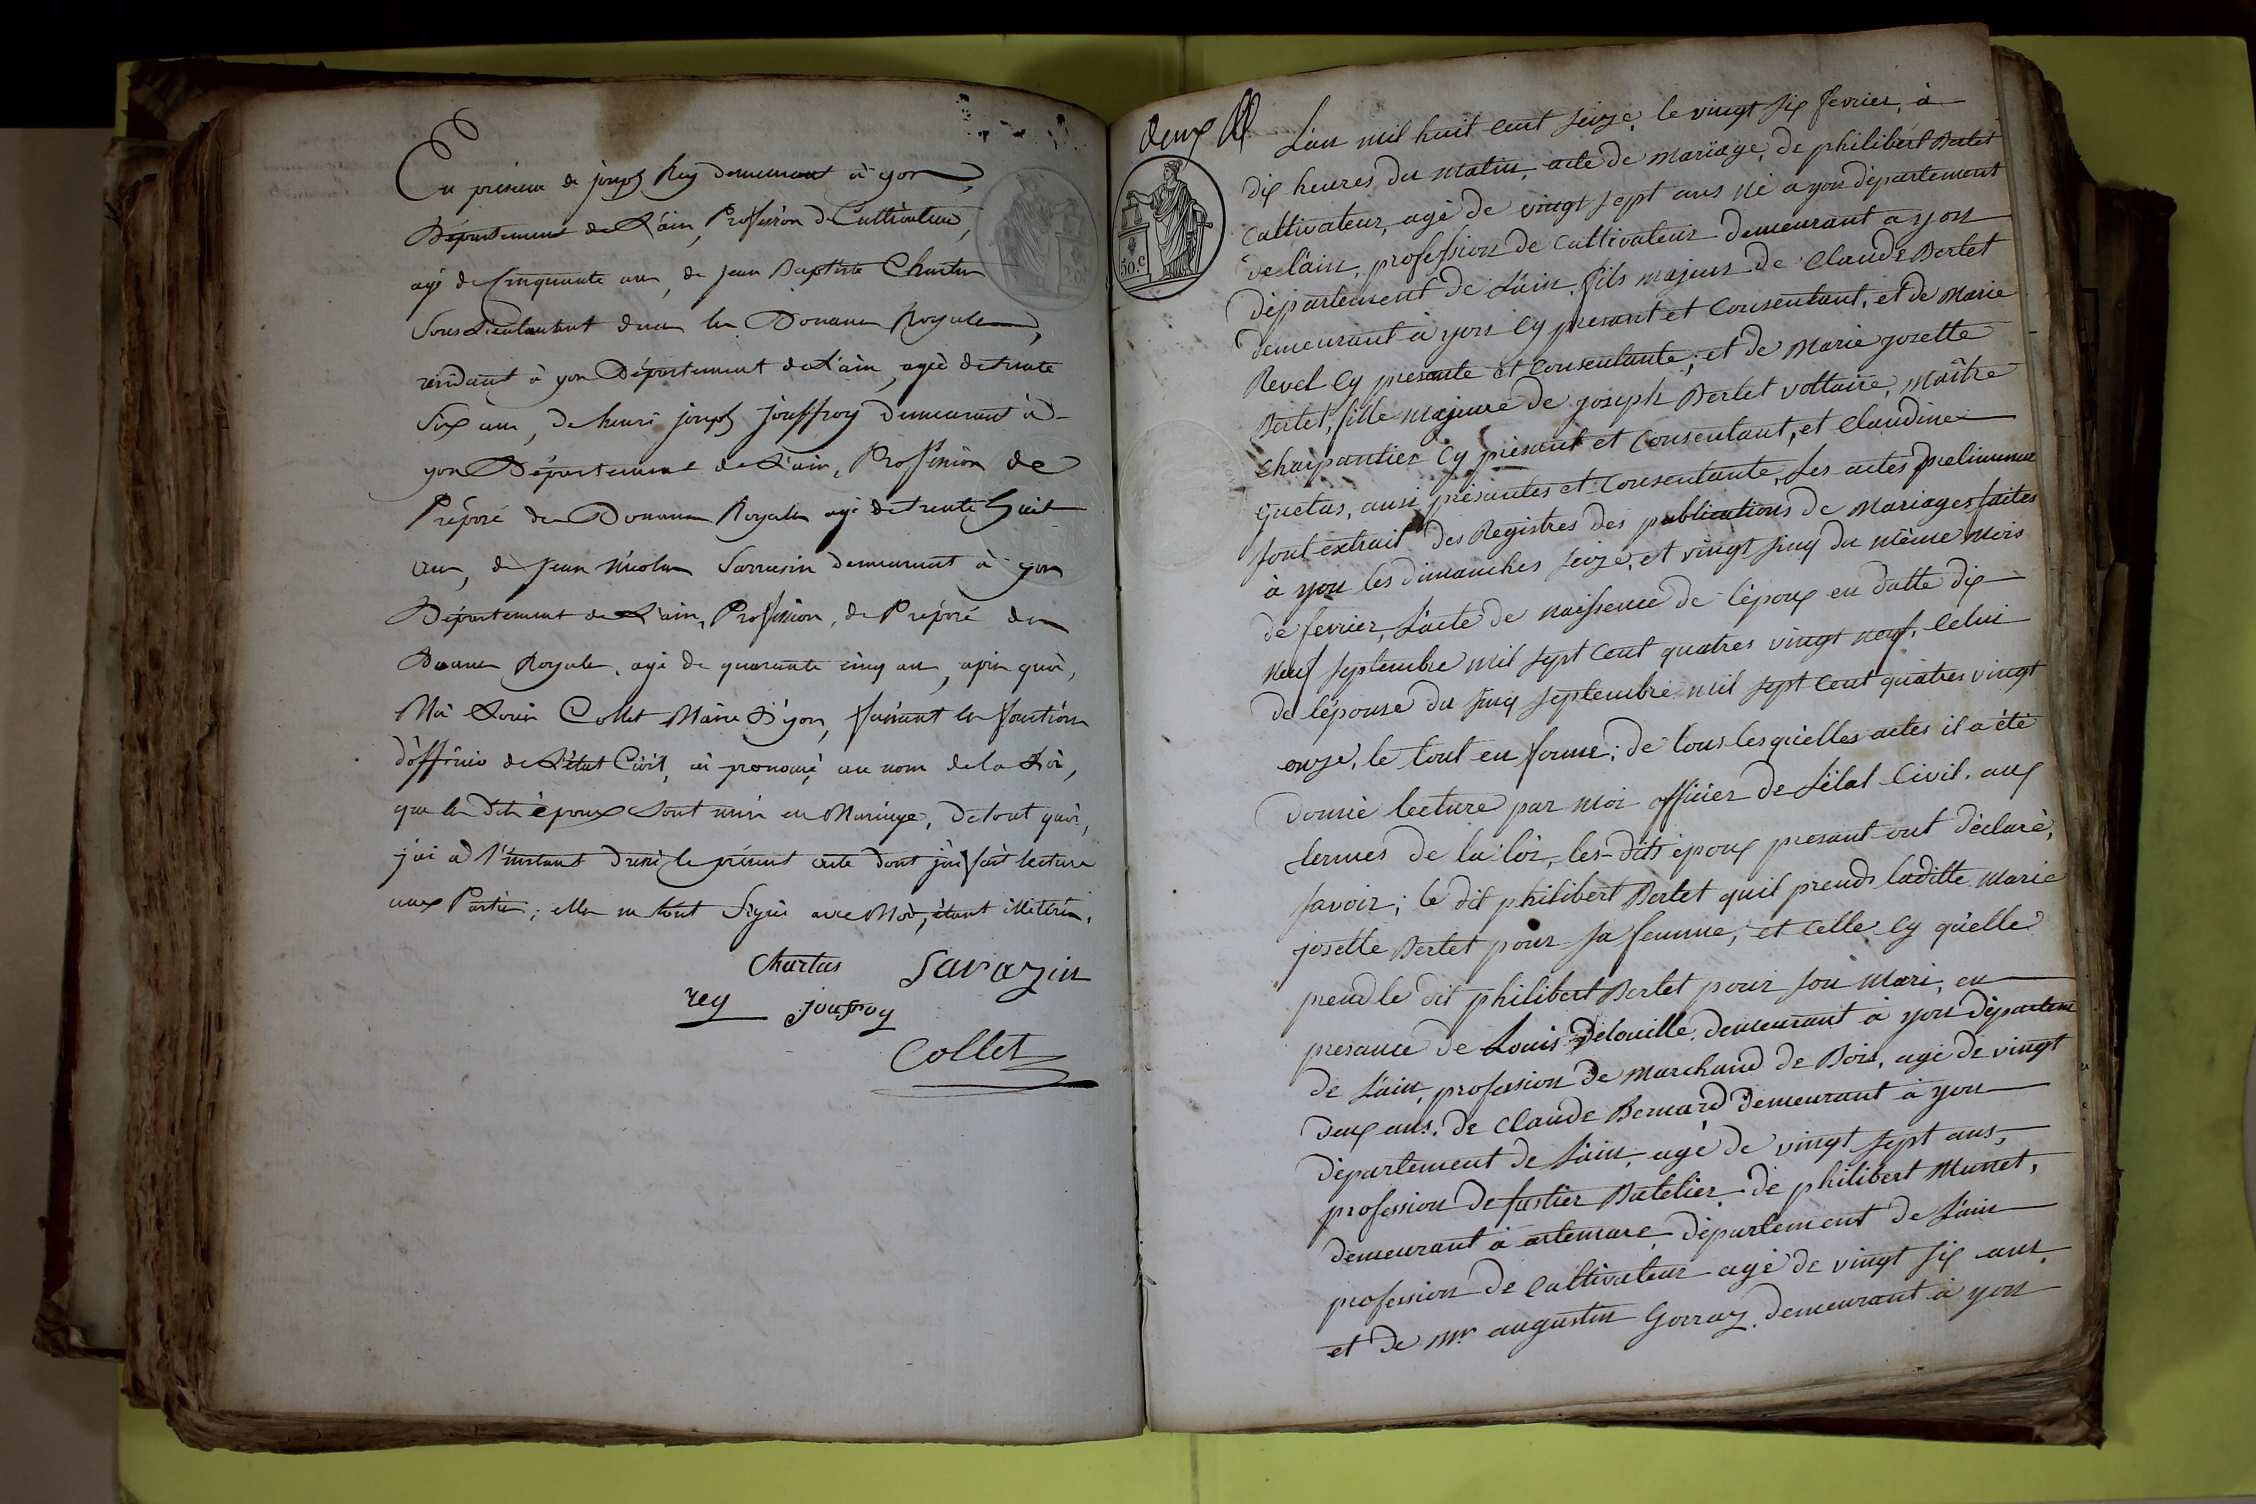 En présence de joseph Rey demeurant à yon,
Département de L'ain, Profession de Cultivateur,
agé de Cinquante ans, de Jean Baptiste Chartus
Sous Lieutenant dans les Douanes Royales,
résidant à yon Département de L'ain, agée de trente
Six ans, de henri joseph jouffroy demeurant à
yon Département de L'ain, Profession de
Préposé des Douanes Royales agé de trente huit
ans, de Jean Nicolas Sarrasin demeurant à yon
Département de L'ain, Profession, de Préposé des
Douanes Royales, agé de quarante cinq ans, après quoi,
Moi Louis Collet Maire d'yon, faisant les fonctions
d'officier de L'état Civil, ai prononcé au nom de la Loi,
que les dits époux sont unis en Mariage, de tout quoi,
j'ai à l'instant dressé le présent acte dont j'ai fait lecture
aux Parties; elles ne l'ont Signé avec Moi, étant illitérés.
Chartus Savazin
rey joufroy
Collet
deux
50.c
L'an mil huit cent seize, le vingt six fevrier, à
dix heures du matin, acte de mariage, de philibért Bertet
cultivateur, agé de vingt sept ans né a yon département
de l'ain, profession de cultivateur demeurant a yon
département de L'ain, fils majeur de Claude Bertet
demeurant à yon Cy presant et Consentant, et de Marie
Revel Cy presante et consentante; et de Marie josette
Bertet, fille majeure de joseph Bertet voltaire, maître
charpantier Cy présant et Consentant, et Claudine
guetas, ausi présantes et Consentante, Les actes preliminaire
sont extrait des Registres des publications de Mariages faites
à yon les dimanches seize, et vingt sinq du même mois
de fevrier, L'acte de naissence de l'époux en datte dix
neuf septembre mil sept cent quatres vingt neuf, Celui
de l'épouse du sinq septembre mil sept cent quatres vingt
onze, le tout en forme; de tous lesquèlles actes il a été
donné lecture par moi officier de L'état Civil. aux
termes de la loi, les dits époux presant ont déclaré,
savoir; le dit philibert Bertet quil prends laditte Marie
josette Bertet pour sa femme, et celle Cy quèlle
prend le dit philibert Bertet pour son mari, en
presance de Louis Delouille demeurant à yon départem
de L'ain, profession de marchand de Bois, agé de vingt
deux ans, de Claude Bernard demeurant à yon
département de L'ain, agé de vingt sept ans,
profession de fustier Batelier de philibert Murret,
demeurant à artemare, département de L'ain
profession de cultivateur agé de vingt six ans,
et de Mr augustin Gorraz, demeurant à yon